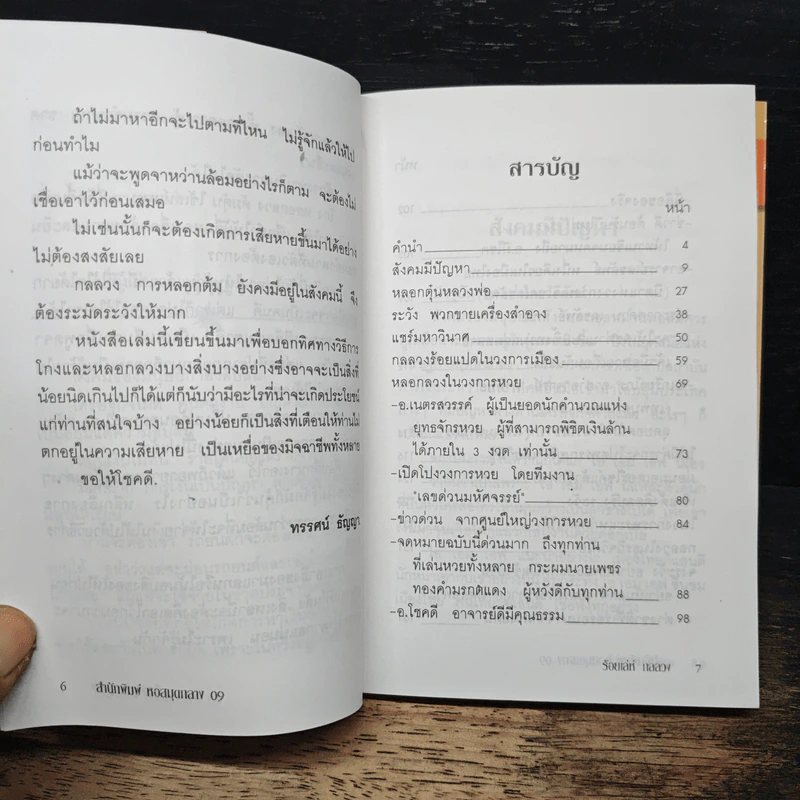 ถ้าไม่มาหาอีกจะไปตามที่ไหน ไม่รู้จักแล้วให้ไป
ก่อนทำไม
แม้ว่าจะพูดจาหว่านล้อมอย่างไรก็ตาม จะต้องไม่
เชื่อเอาไว้ก่อนเสมอ
ไม่เช่นนั้นก็จะต้องเกิดการเสียหายขึ้นมาได้อย่าง
ไม่ต้องสงสัยเลย
กลลวง การหลอกต้ม ยังคงมีอยู่ในสังคมนี้ จึง
ต้องระมัดระวังให้มาก
หนังสือเล่มนี้เขียนขึ้นมาเพื่อบอกทิศทางวิธีการ
โกงและหลอกลวงบางสิ่งบางอย่างซึ่งอาจจะเป็นสิ่งที่
น้อยนิดเกินไปก็ได้แต่ก็นับว่ามีอะไรที่น่าจะเกิดประโยชน์
แก่ท่านที่สนใจบ้าง อย่างน้อยก็เป็นสิ่งที่เตือนให้ท่านไม่
ตกอยู่ในความเสียหาย เป็นเหยื่อของมิจฉาชีพทั้งหลาย
ขอให้โชคดี.
ทรรศน์ ธัญญา
6 สำนักพิมพ์ หอสมุดกลาง 09
สารบัญ
หน้า
คำนำ 4
สังคมมีปัญหา 9
หลอกตุ๋นหลวงพ่อ 27
ระวัง พวกขายเครื่องสำอาง 38
แชร์มหาวินาศ 50
กลลวงร้อยแปดในวงการเมือง 59
หลอกลวงในวงการหวย 69
-อ.เนตรสวรรค์ ผู้เป็นยอดนักคำนวณแห่ง
ยุทธจักรหวย ผู้ที่สามารถพิชิตเงินล้าน
ได้ภายใน 3 งวด เท่านั้น 73
-เปิดโปงวงการหวย โดยทีมงาน
"เลขด่วนมหัศจรรย์" 80
-ข่าวด่วน จากศูนย์ใหญ่วงการหวย 84
-จดหมายฉบับนี้ด่วนมาก ถึงทุกท่าน
ที่เล่นหวยทั้งหลาย กระผมนายเพชร
ทองคำมรกตแดง ผู้หวังดีกับทุกท่าน 88
-อ.โชคดี อาจารย์ดีมีคุณธรรม 98
ร้อยเล่ห์ กลลวง 7